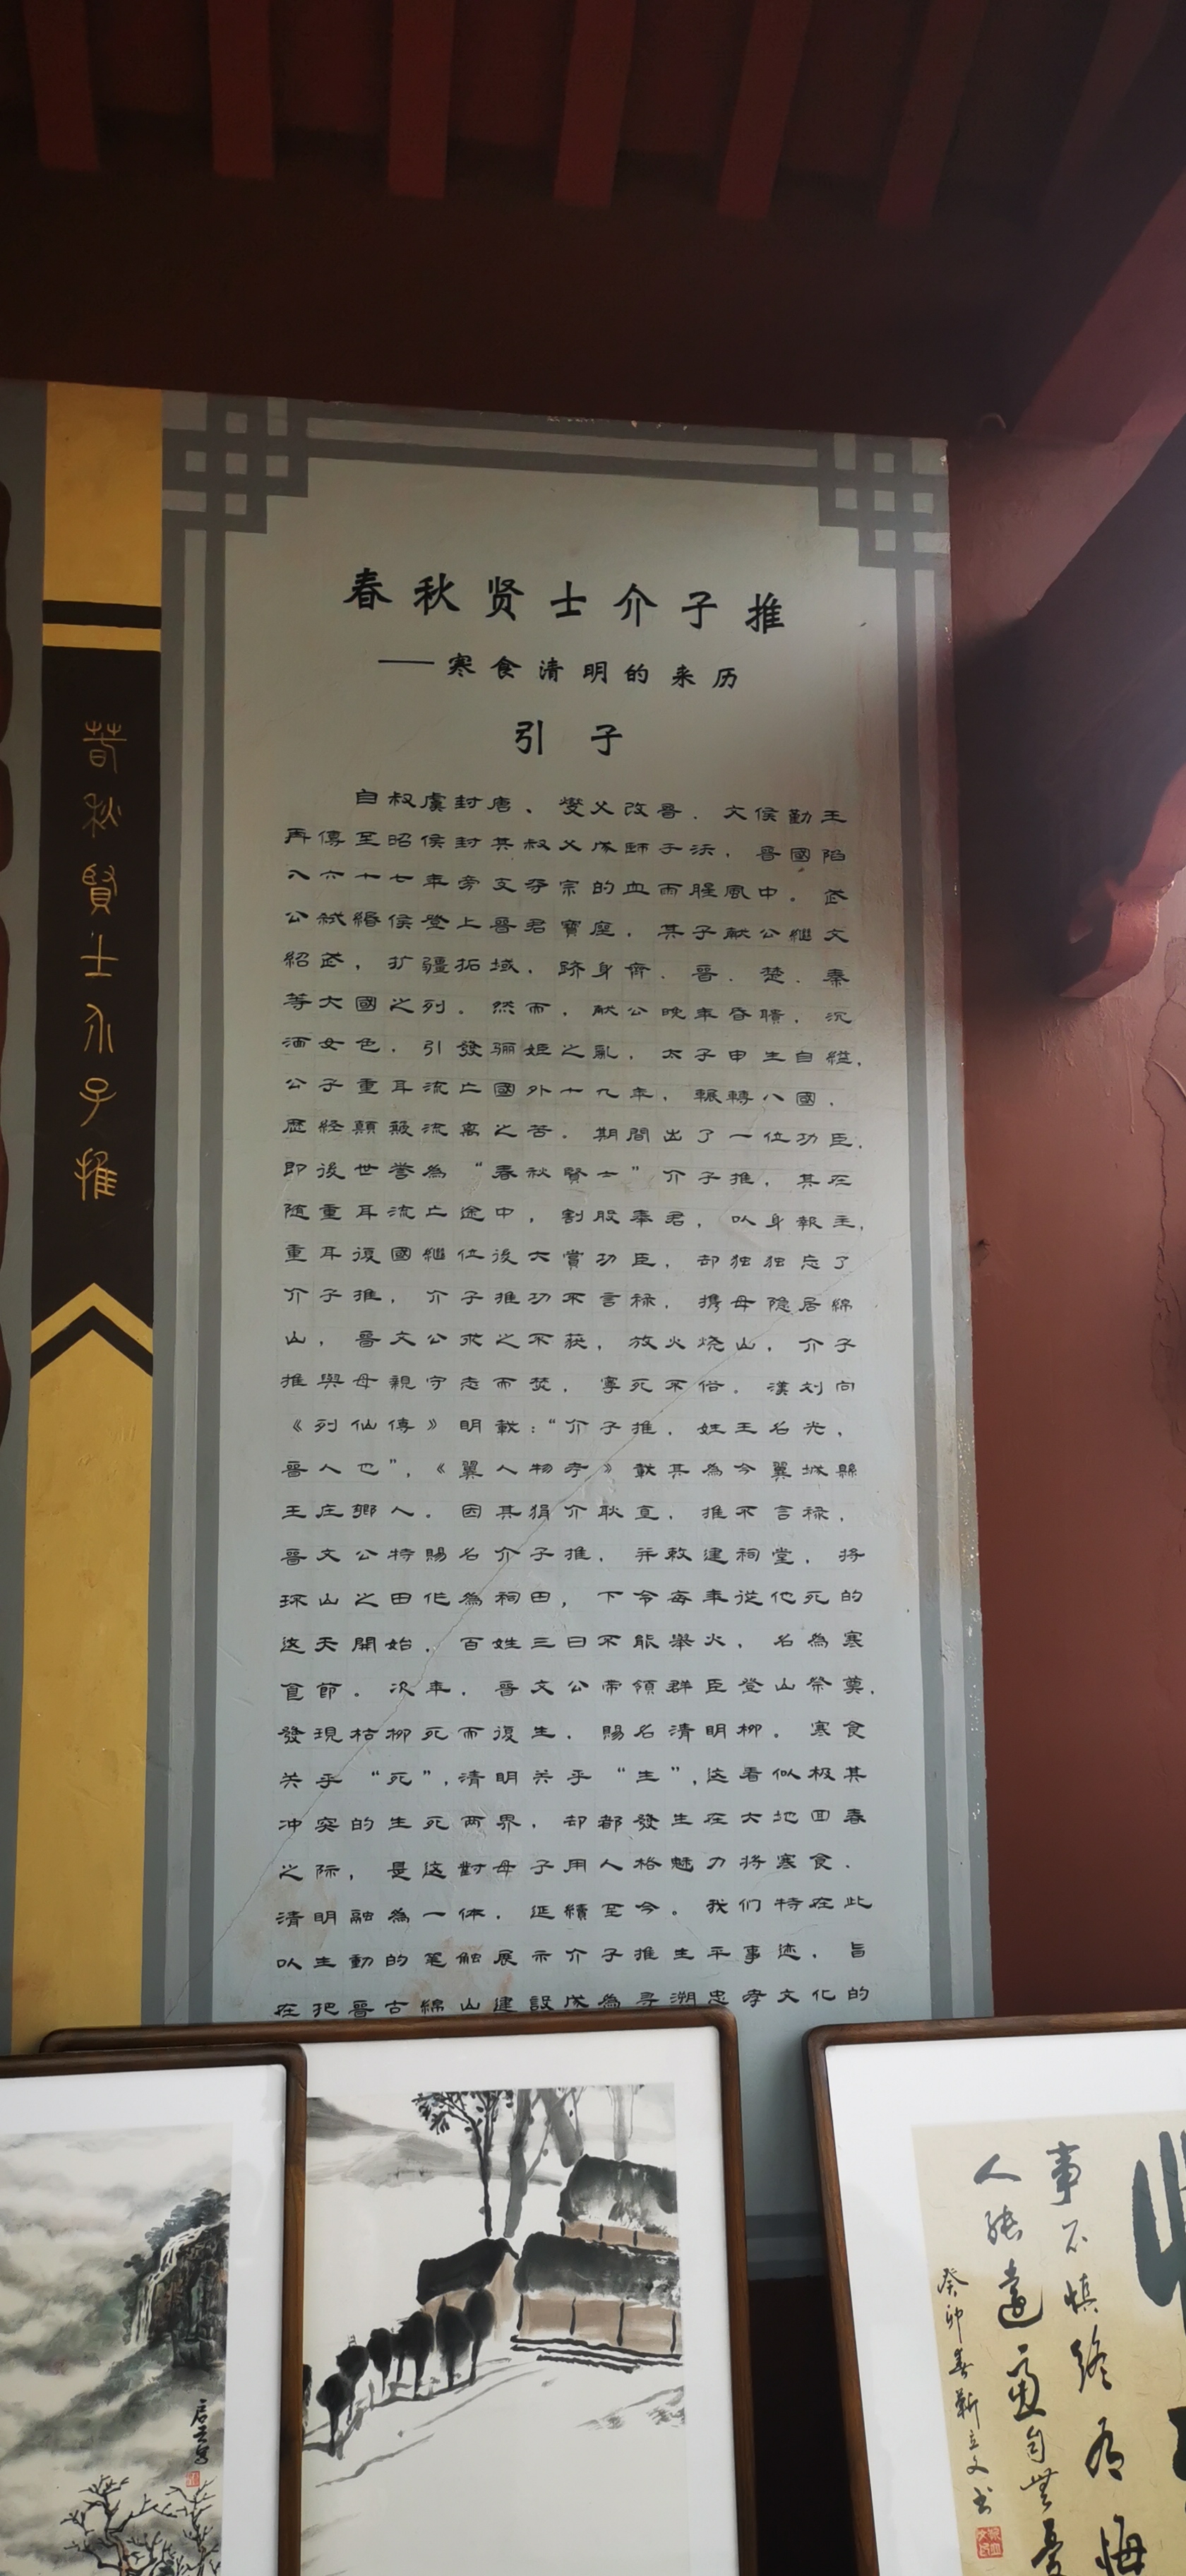 春秋賢士介子推
春秋贤士介子推
——寒食清明的来历
引子
自叔虞封唐、燮父改晋.文侯勤王
再傳至昭侯封其叔父成師于沃,晋國陷
入六十七年旁支夺宗的血雨腥風中。武
公弑緡侯登上晋君寶座,其子献公繼文
紹武,扩疆拓域,跻身齊.晋.楚.秦
等大國之列。然而,献公晚年昏聵,沉
湎女色,引發骊姬之亂,太子申生自縊,
公子重耳流亡國外十九年,輾轉八國,
歷经顛簸流离之苦。期間出了一位功臣,
即後世誉為“春秋賢士”介子推,其在
随重耳流亡途中,割股奉君,以身報主,
重耳復國繼位後大賞功臣,却独独忘了
介子推,介子推功不言禄,携母隐居綿
山,晋文公求之不获,放火烧山,介子
推與母親守志而焚,寧死不俗。漢刘向
《列仙傳》明載:“介子推,姓王名光,
晋人也”,《翼人物考》載其為今翼城縣
王庄鄉人。因其狷介耿直,推不言禄,
晋文公特賜名介子推,并敕建祠堂,将
环山之田化為祠田,下令每年從他死的
这天開始,百姓三日不能舉火,名為寒
食節。次年,晋文公带領群臣登山祭奠,
發現枯柳死而復生,賜名清明柳。寒食
关乎“死”,清明关乎“生”,这看似极其
冲突的生死两界,却都發生在大地回春
之际,是这對母子用人格魅力将寒食.
清明融為一体,延續至今。我们特在此
以生動的笔触展示介子推生平事迹,旨
在把晋古綿山建設成為寻溯忠孝文化的
事不慎終有悔
人能遠慮自無憂
癸卯春靳立文书